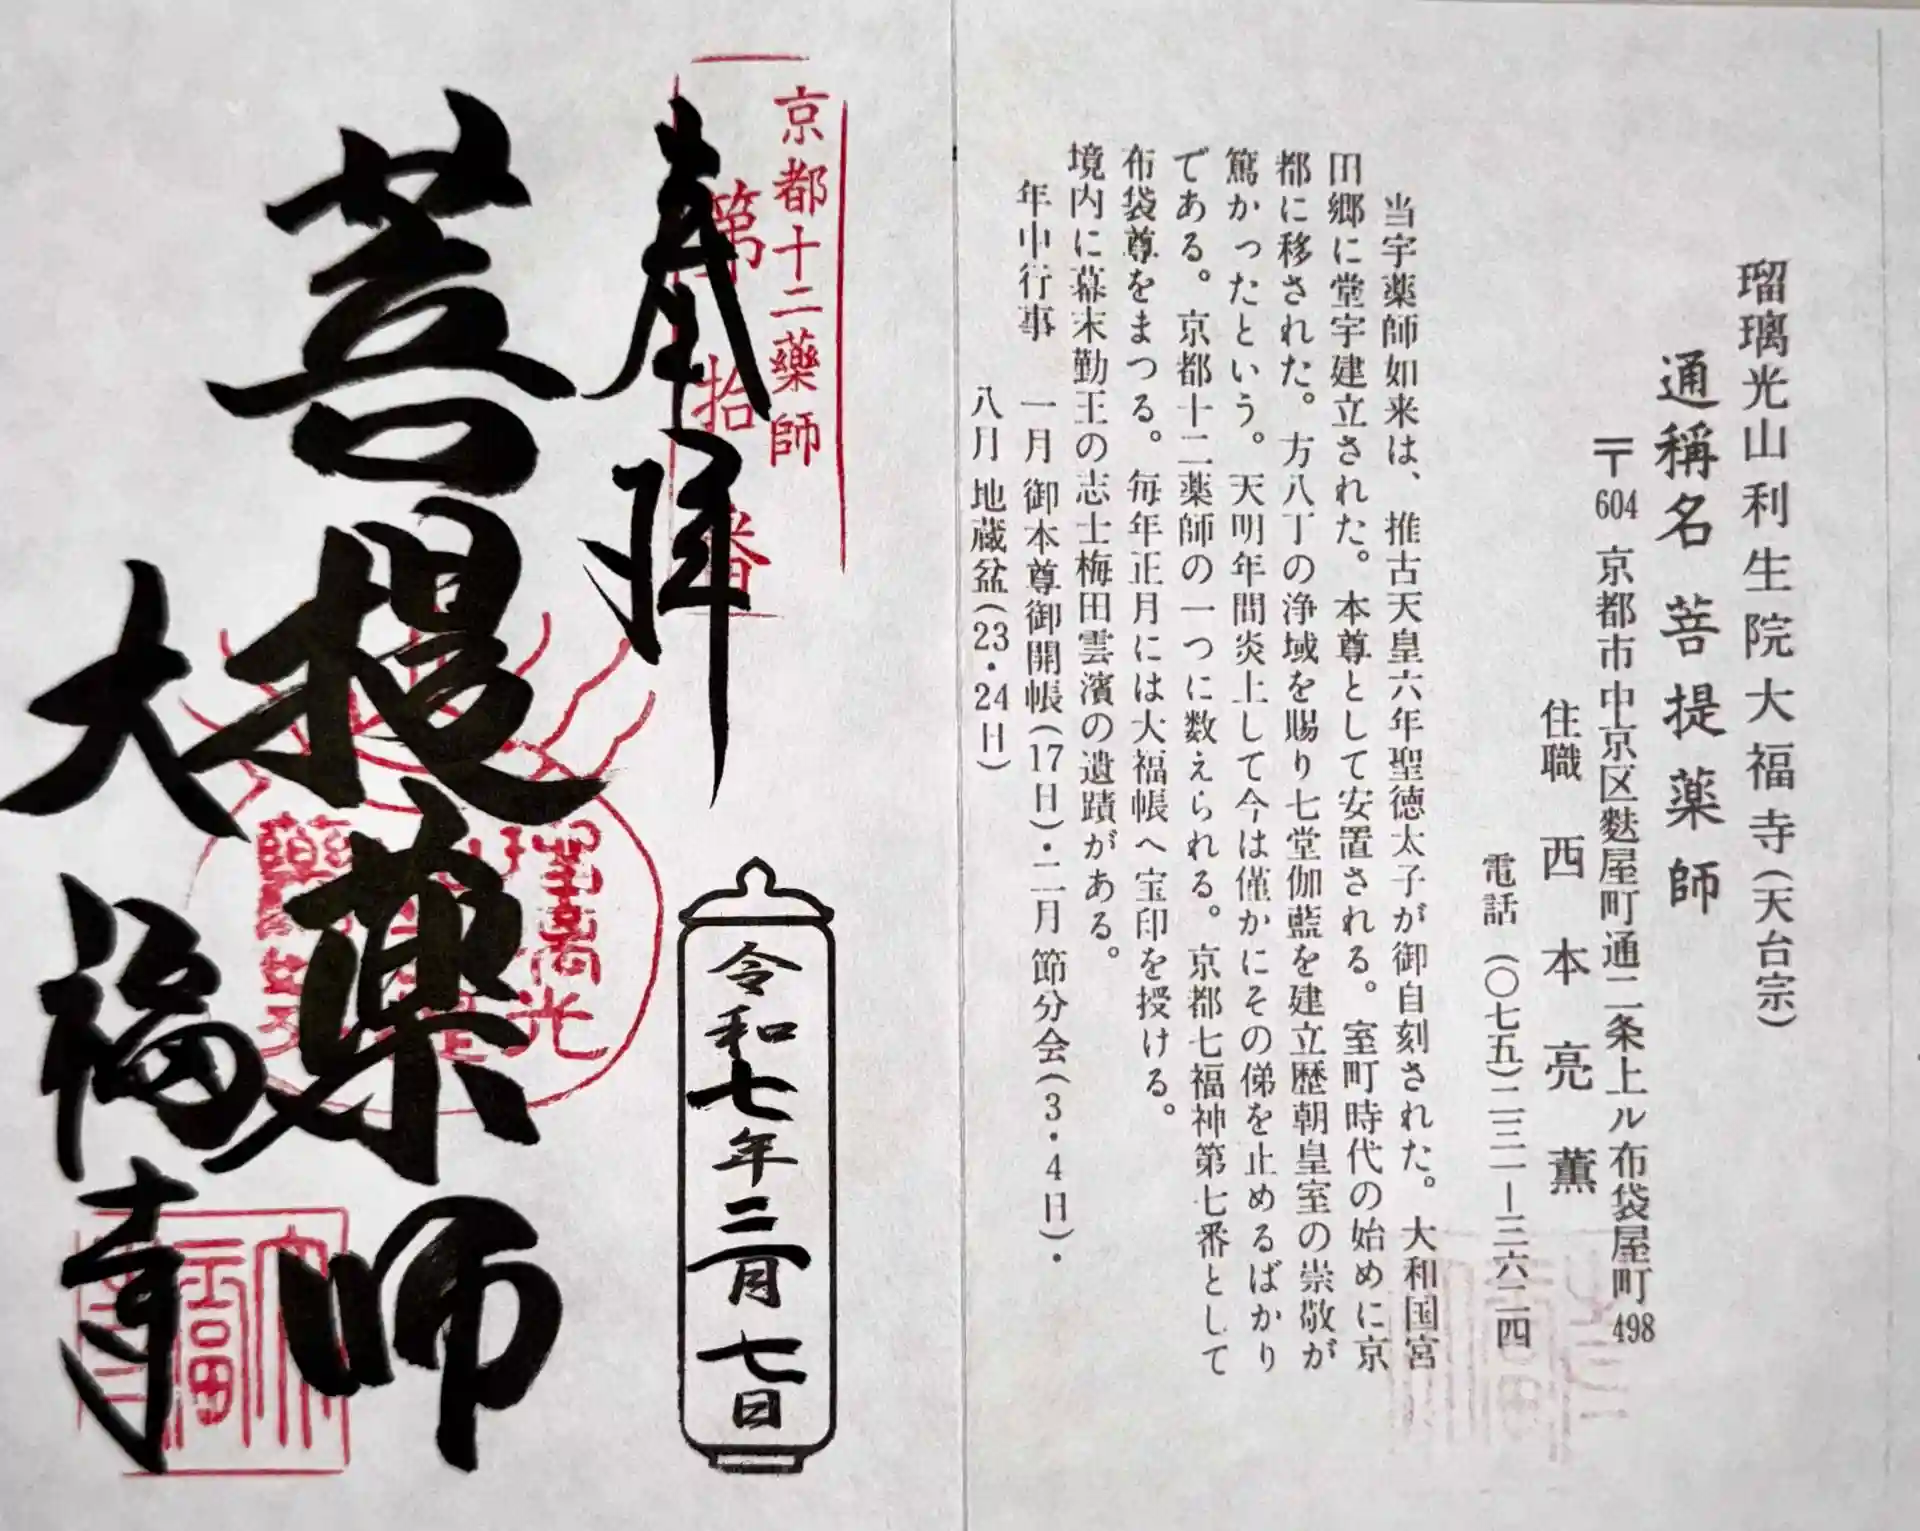 瑠璃光山利生院大福寺(天台宗)
通稱名 菩提薬師
〒604 京都市中京区麩屋町通二条上ル布袋屋町498
住職 西本亮薫
電話 (〇七五)二三一ー三六二四
当宇薬師如来は、推古天皇六年聖徳太子が御自刻された。大和国宮
田郷に堂宇建立された。本尊として安置される。室町時代の始めに京
都に移された。方八丁の浄域を賜り七堂伽藍を建立歴朝皇室の崇敬が
篤かったという。天明年間炎上して今は僅かにその俤を止めるばかり
である。京都十二薬師の一つに数えられる。京都七福神第七番として
布袋尊をまつる。毎年正月には大福帳へ宝印を授ける。
境内に幕末勤王の志士梅田雲濱の遺蹟がある。
年中行事 一月 御本尊御開帳(17日)・二月 節分会(3・4日)・
八月 地蔵盆(23・24日)
京都十二藥師
第拾番
奉拝
令和七年二月七日
菩提薬師
大福寺